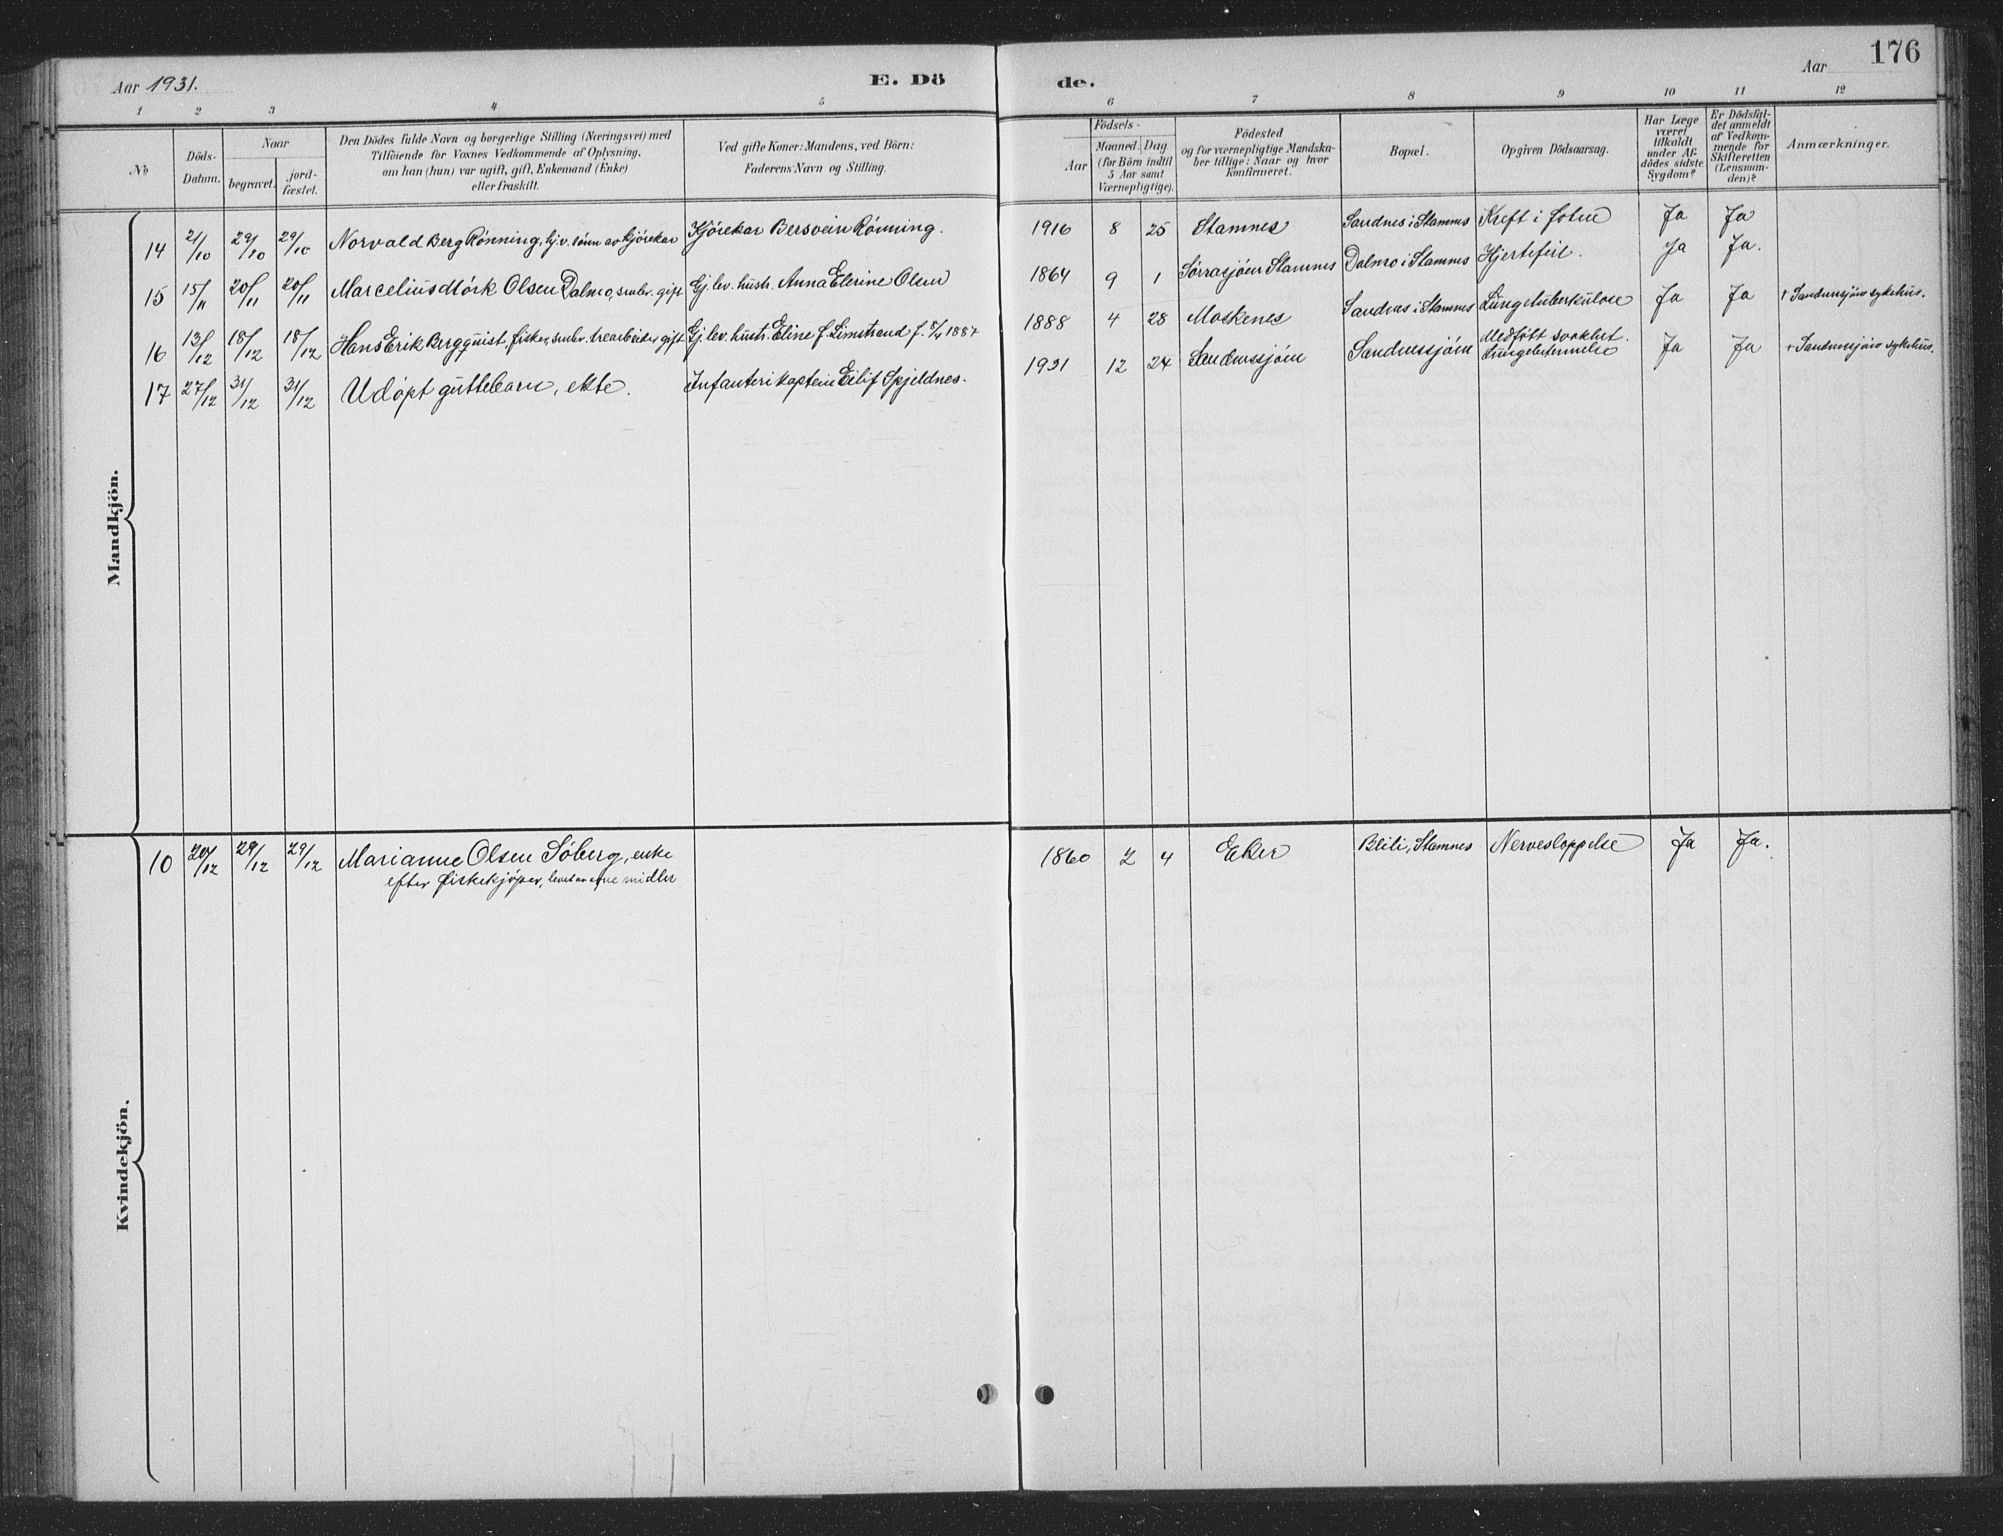 Aar 1931.
E. Dö
de.
Aar
176
1
2
3
4
5
6
7
8
9
10
11
12
No
Döds-
Datum.
Naar
begravet.
jord-
fæstet.
Den Dödes fulde Navn og borgerlige Stilling (Næringsvei) med
Tilföiende for Voxnes Vedkommende af Oplysning,
om han (hun) var ugift, gift, Enkemand (Enke)
eller fraskilt.
Ved gifte Koner: Mandens, ved Börn:
Faderens Navn og Stilling.
Födsels-
Aar
Maaned. Dag
(for Börn indtil
5 Aar samt
Værnepligtige).
Födested
og for værnepligtige Mandska-
ber tillige: Naar og hvor
Konfirmeret.
Bopæl.
Opgiven Dödsaarsag.
Har Læge
været
tilkaldt
under Af-
dödes sidste
Sygdom?
Er Dödsfal-
det anmeldt
af Vedkom-
mende for
Skifteretten
(Lensman-
den)?
Anmærkninger.
Mandkjön.
14 21/10 29/10 29/10 Norvald Berg Rönning, hj.v. sönn av kjörekar Kjörekar Bersvein Rönning. 1916 8 25 Stamnes Sandnes i Stamnes Kreft i foten Ja Ja
15 15/11 20/11 20/11 Marcelius Mörk Olsen Dalmo, smbr. gift Gj. lev. hustr. Anna Elerine Olsen 1864 9 1 Sörrasjöen Stamnes Dalmo i Stamnes Hjertefeil. Ja Ja.
16 13/12 18/12 18/12 Hans Erik Bergquist, fisker, smbr. trearbeider gift Gj. lev. hustr. Eline f. Limstrand f. 1887 1888 4 28 Moskenes Sandnes i Stamnes Lungetuberkulose Ja Ja + Sandnessjöen sykehus.
17 27/12 31/12 31/12 Udöpt guttebarn, ekte. Infanterikaptein Eilif Spjeldnes. 1931 12 24 Sandnessjöen Sandnessjöen Medfött svakhet.
Lungebetennelse Ja Ja + Sandnessjöen sykehus.
Kvindekjön.
10 20/12 29/12 29/12 Marianne Olsen Söberg, enke 1860 2 4 Eker Blili, Stamnes Nerveslappelse Ja Ja.
efter fiskekjöper, levet av egne midler